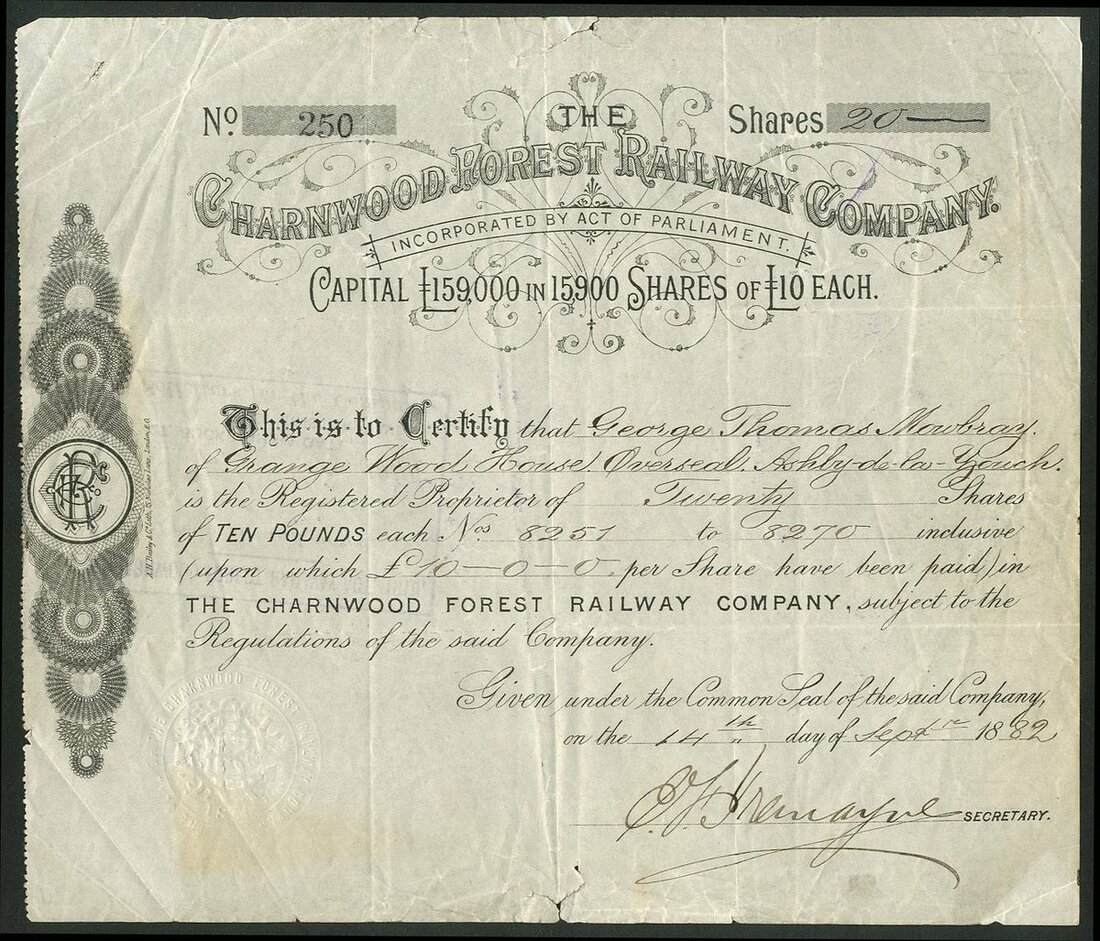 No 250 THE Shares 20
CHARNWOOD FOREST RAILWAY COMPANY.
INCORPORATED BY ACT OF PARLIAMENT.
CAPITAL £159,000 IN 15,900 SHARES OF £10 EACH.
This is to Certify that George Thomas Mowbray
of Grange Wood House, Overseal, Ashby-de-la-Zouch.
is the Registered Proprietor of Twenty Shares
of TEN POUNDS each Nos 8251 to 8270 inclusive
(upon which £10-0-0 per Share have been paid) in
THE CHARNWOOD FOREST RAILWAY COMPANY, subject to the
Regulations of the said Company.
Given under the Common Seal of the said Company,
on the 14th day of Septr 1882
SECRETARY.
THE CHARNWOOD FOREST